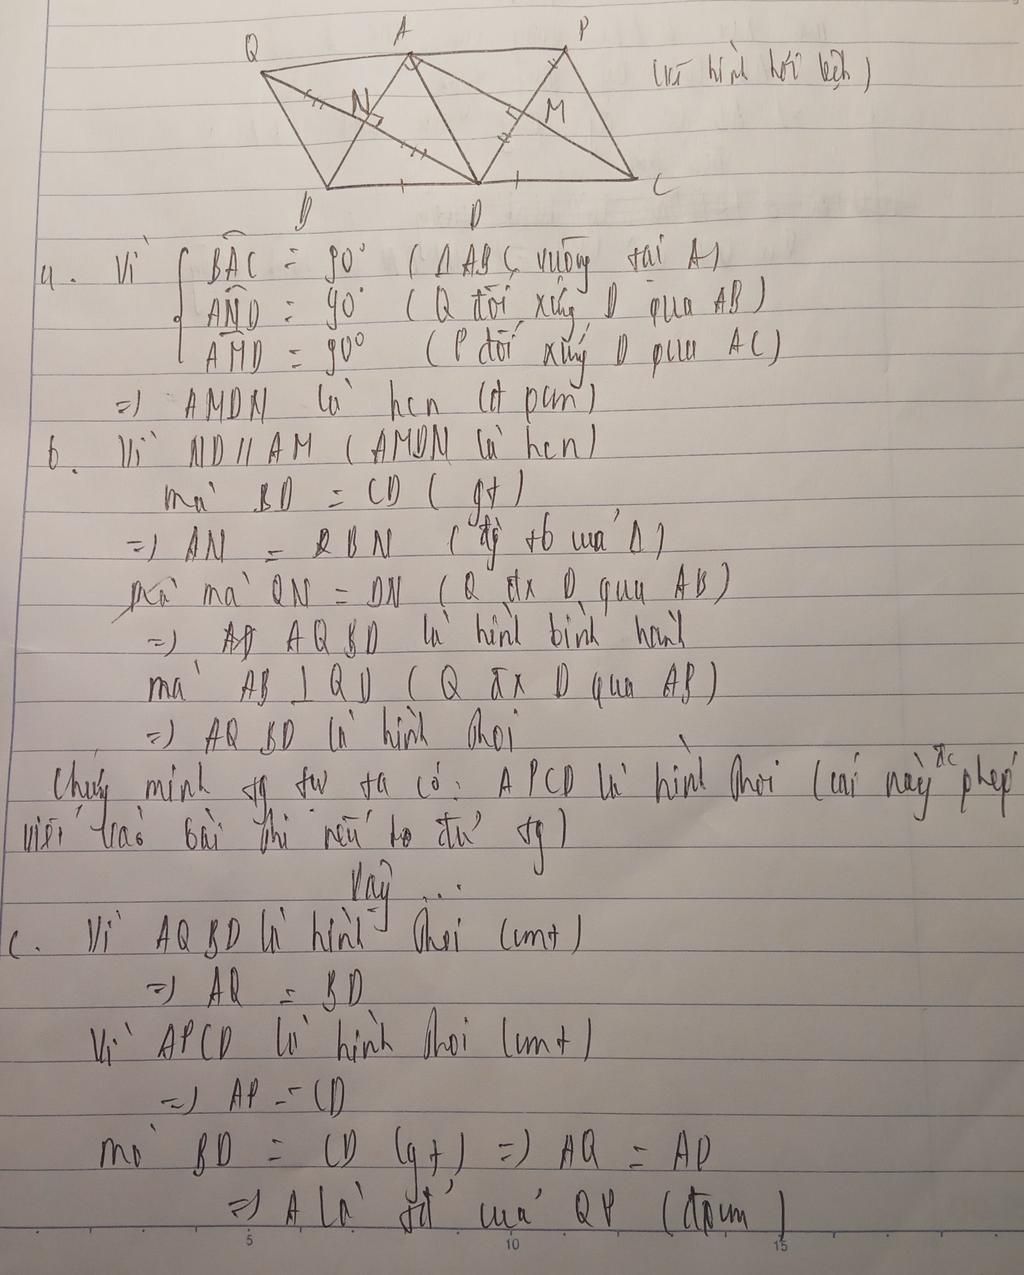 Q A P
(vẽ hình hơi lệch)
N M
B D C
a. Vì BAC = 90° (Δ ABC vuông tại A)
AND = 90° (Q đối xứng D qua AB)
AMD = 90° (P đối xứng D qua AC)
=) AMDN là hcn (đpcm)
b. Vì ND // AM (AMDN là hcn)
mà BD = CD (gt)
=) AN = BN (đg tb của Δ)
mà QN = DN (Q đx D qua AB)
=) AQBD là hình bình hành
mà AB ⊥ QD (Q đx D qua AB)
=) AQBD là hình thoi
Chứng minh tg tự ta có: APCD là hình thoi (cái này đc phép
viết vào bài thi nếu nó đã tg)
Vậy ...
c. Vì AQBD là hình thoi (cmt)
=) AQ = BD
Vì APCD là hình thoi (cmt)
=) AP = CD
mà BD = CD (gt) =) AQ = AP
=) A là tđ của QP (đpcm)
5 10 15